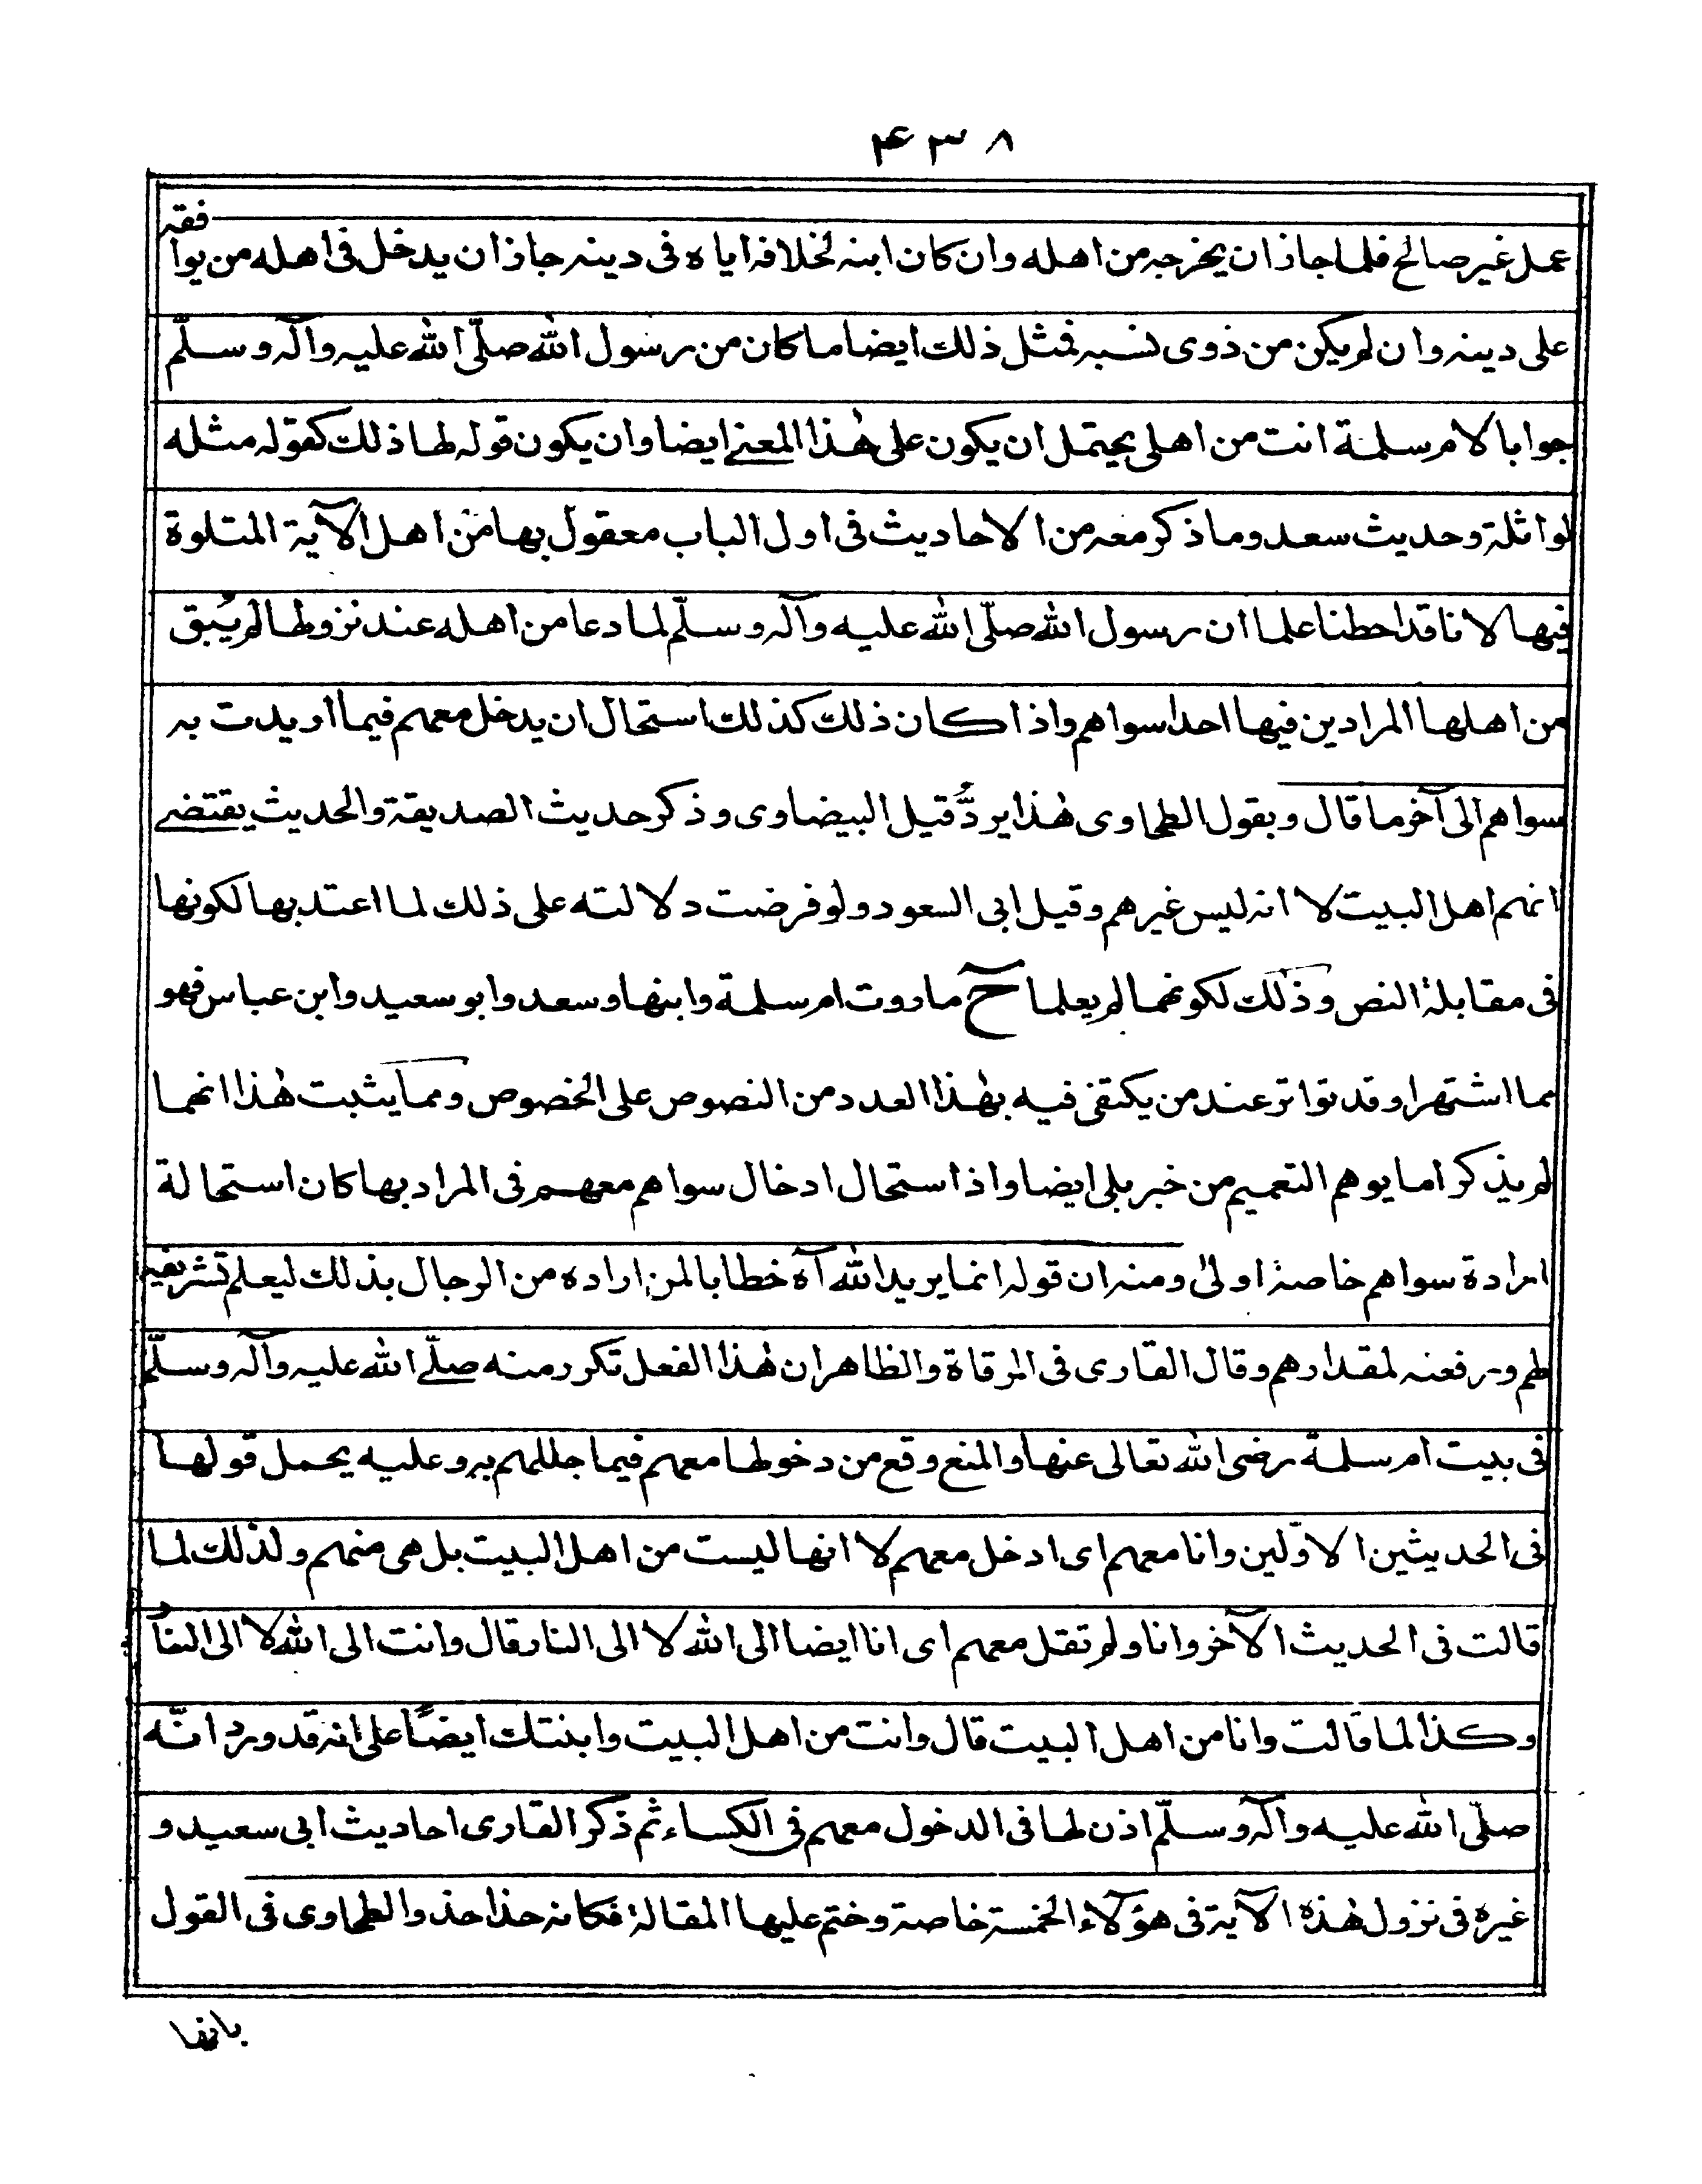 ۴۳۸
عمل غير صالح فلما جاز ان يخرجه من اهله وان كان ابنه لخلافه اياه فى دينه جاز ان يدخل فى اهله من يوافقه
على دينه وان لم يكن من ذوى نسبه فمثل ذلك ايضا ما كان من رسول الله صلّى الله عليه وآله وسلّم
جوابا لام سلمة انت من اهلى يحتمل ان يكون على هٰذا المعنے ايضا وان يكون قوله لها ذلك كقوله مثله
لواثلة وحديث سعد وما ذكر معه من الاحاديث فى اول الباب معقول بها من اهل الآية المتلوة
فيها لانا قد احطنا علما ان رسول الله صلّى الله عليه وآله وسلّم لما دعا من اهله عند نزولها لم يُبق
من اهلها المرادين فيها احدا سواهم واذا كان ذلك كذلك استحال ان يدخل معهم فيما اريدت به
سواهم الى آخر ما قال وبقول الطحاوى هٰذا يردُّ قيل البيضاوى وذكر حديث الصديقة والحديث يقتضے
انهم اهل البيت لا انه ليس غيرهم وقيل ابى السعود ولو فرضت دلالته على ذلك لما اعتد بها لكونها
فى مقابلة النص وذلك لكونهما لم يعلما ح ما روت ام سلمة وابنها وسعد وابو سعيد وابن عباس فهو
مما اشتهر او قد تواتر عند من يكتفى فيه بهٰذا العدد من النصوص على الخصوص ومما يثبت هٰذا انهما
لم يذكرا ما يوهم التعميم من خبر بلى ايضا واذا استحال ادخال سواهم معهم فى المراد بها كان استحالة
ارادة سواهم خاصة اولىٰ ومنه ان قوله انما يريد الله آه خطابا لمن اراده من الرجال بذلك ليعلم تشريفه
لهم ورفعنه لمقدارهم وقال القارى فى المرقاة والظاهر ان هٰذا الفعل تكرر منه صلّے الله عليه وآله وسلّم
فى بيت ام سلمة رضى الله تعالى عنها والمنع وقع من دخولها معهم فيما جللهم به وعليه يحمل قولها
فى الحديثين الاوّلين وانا معهم اى ادخل معهم لا انها ليست من اهل البيت بل هى منهم ولذلك لما
قالت فى الحديث الآخر وانا ولم تقل معهم اى انا ايضا الى الله لا الى النار قال وانت الى الله لا الى النار
وكذا لما قالت وانا من اهل البيت قال وانت من اهل البيت وابنتك ايضًا على انه قد ورد انّه
صلّى الله عليه وآله وسلّم اذن لها فى الدخول معهم فى الكساء ثم ذكر القارى احاديث ابى سعيد و
غيره فى نزول هٰذه الآية فى هؤلاء الخمسة خاصة وختم عليها المقالة فكانه حذا حذو الطحاوى فى القول
بانها